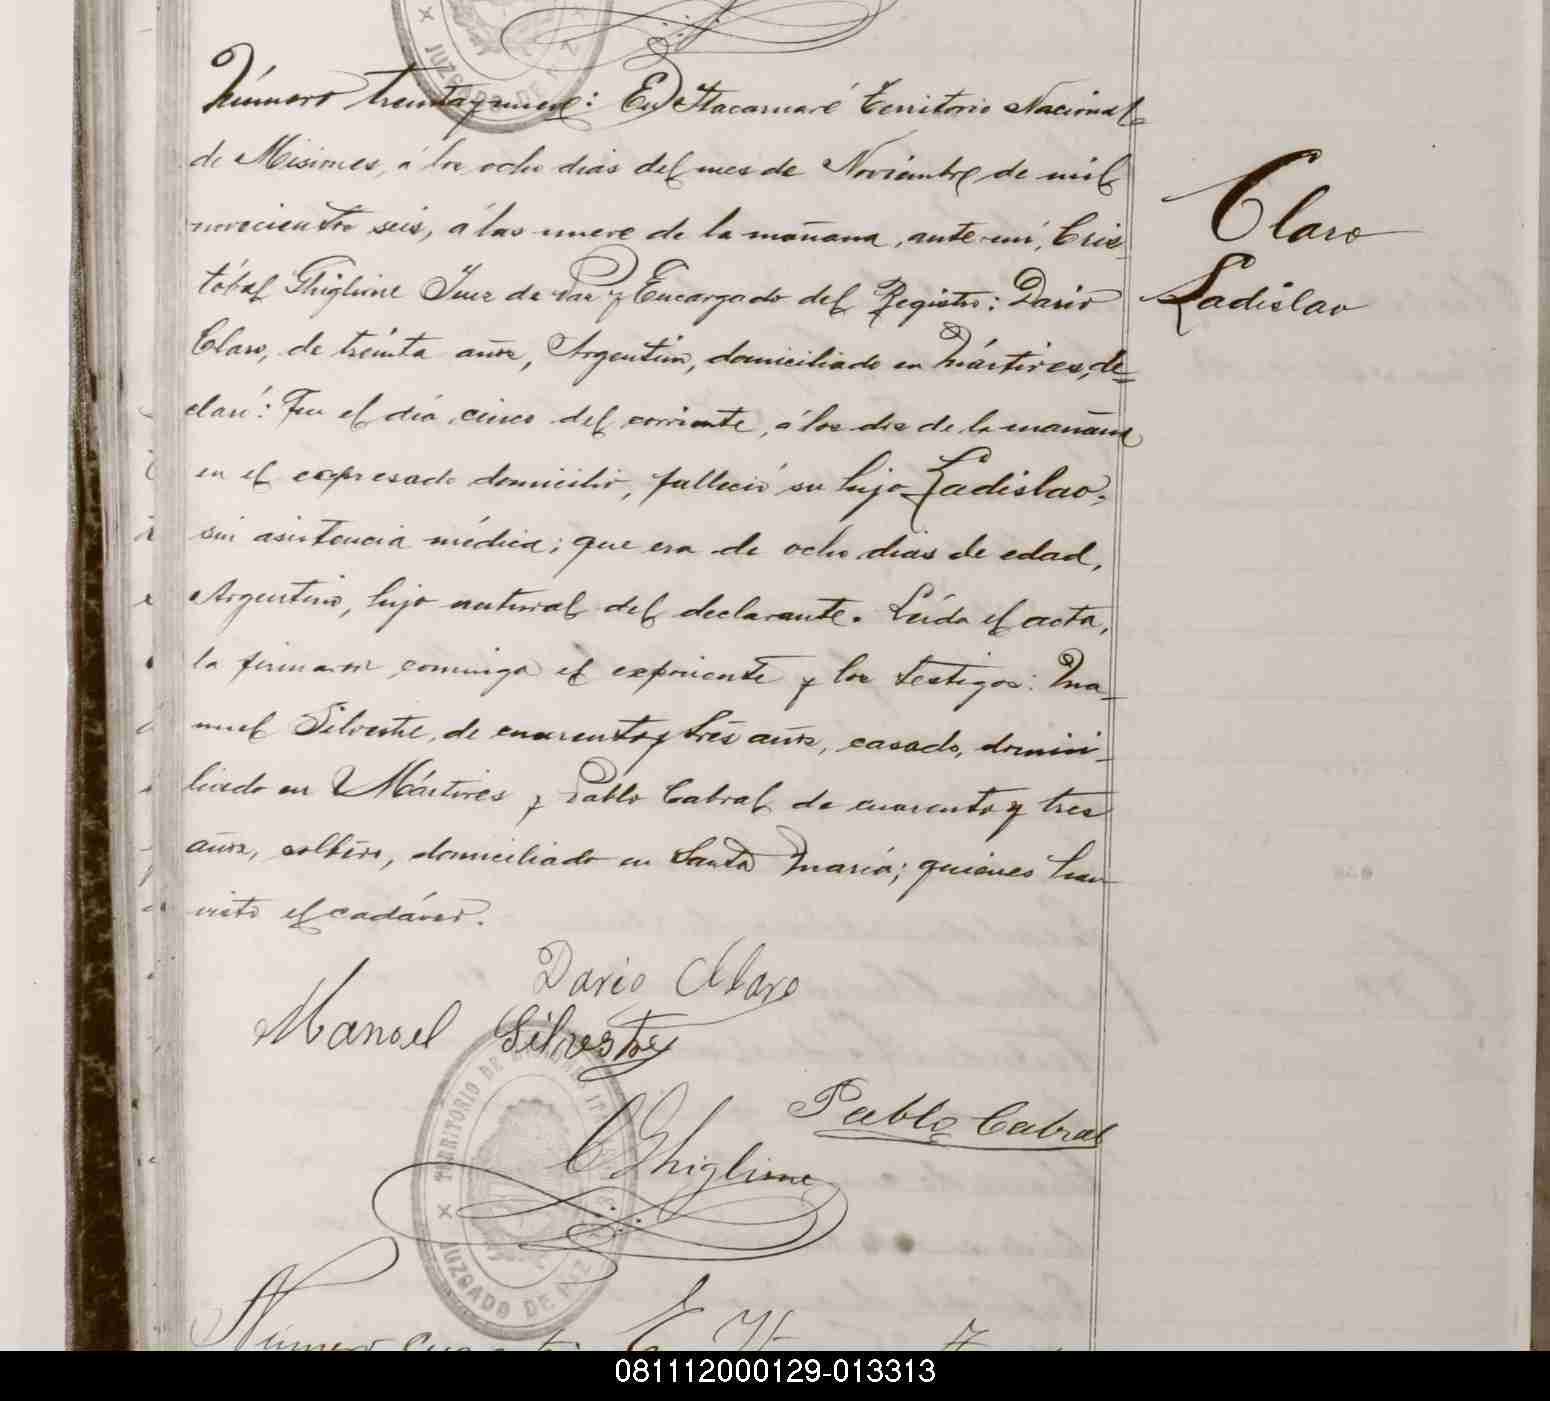 JUZGADO DE PAZ
Número treinta y nueve: En Itacaruaré Territorio Nacional
de Misiones, á los ocho dias del mes de Noviembre de mil
novecientos seis, á las nueve de la mañana, ante mí, Cris-
tóbal Ghiglione Juez de Paz y Encargado del Registro: Dario
Claro, de treinta años, Argentino, domiciliado en Mártires, de-
claró: Que el día cinco del corriente, á las diez de la mañana
en el expresado domicilio, falleció su hijo Ladislao,
sin asistencia médica; que era de ocho dias de edad,
Argentino, hijo natural del declarante. Leída el acta,
la firmaron conmigo el exponente y los testigos: Ma-
nuel Silvestre, de cuarenta y tres años, casado, domici-
liado en Mártires y Pablo Cabral de cuarenta y tres
años, soltero, domiciliado en Santa María; quienes han
visto el cadáver.
Claro
Ladislao
Dario Claro
Manoel Silvestre
Pablo Cabral
C Ghiglione
TERRITORIO DE
JUZGADO DE PAZ
Número
081112000129-013313